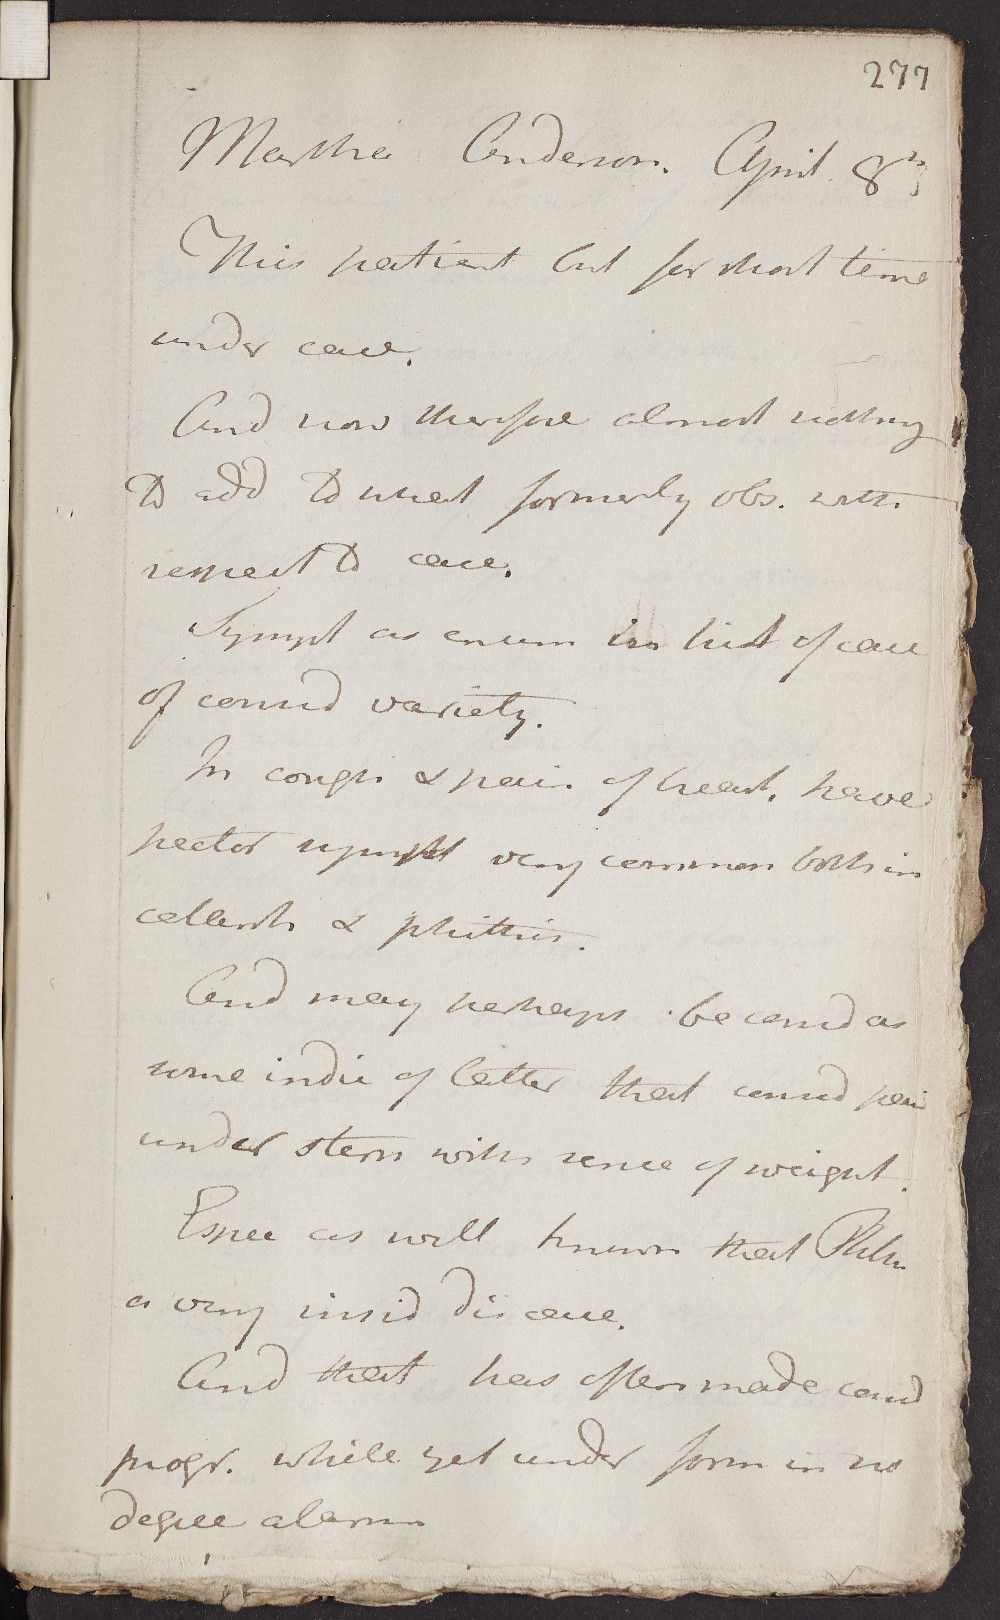 277
Martha Anderson. April 8th
This patient but for short time
under care.
And now therefore almost nothing
to add to what formerly obs. with
respect to case.
Sympt as enum in list of case
of consid variety.
In cough & pain of breast. have
pector sympt very common both in
catarrh & phthis.
And may perhaps be consid as
some indic of latter that consid pain
under stern with sense of weight.
Espec as well known that Phth
a very insid disease.
And that has often made consid
progr. while yet under form in no
degree alarm